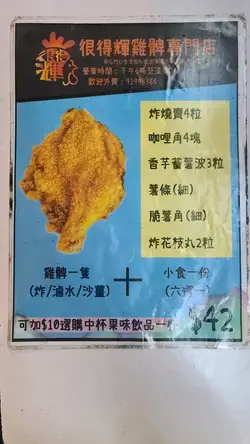 很得輝雞髀專門店
營業時間：下午6時至
歡迎外賣：
很得
輝
炸燒賣4粒
咖哩角4塊
香芋蕃薯波3粒
薯條(細)
脆薯角(細)
炸花枝丸2粒
雞髀一隻
(炸/滷水/沙薑)
+
小食一份
(六選一)
可加$10選購中杯果味飲品一杯
$42